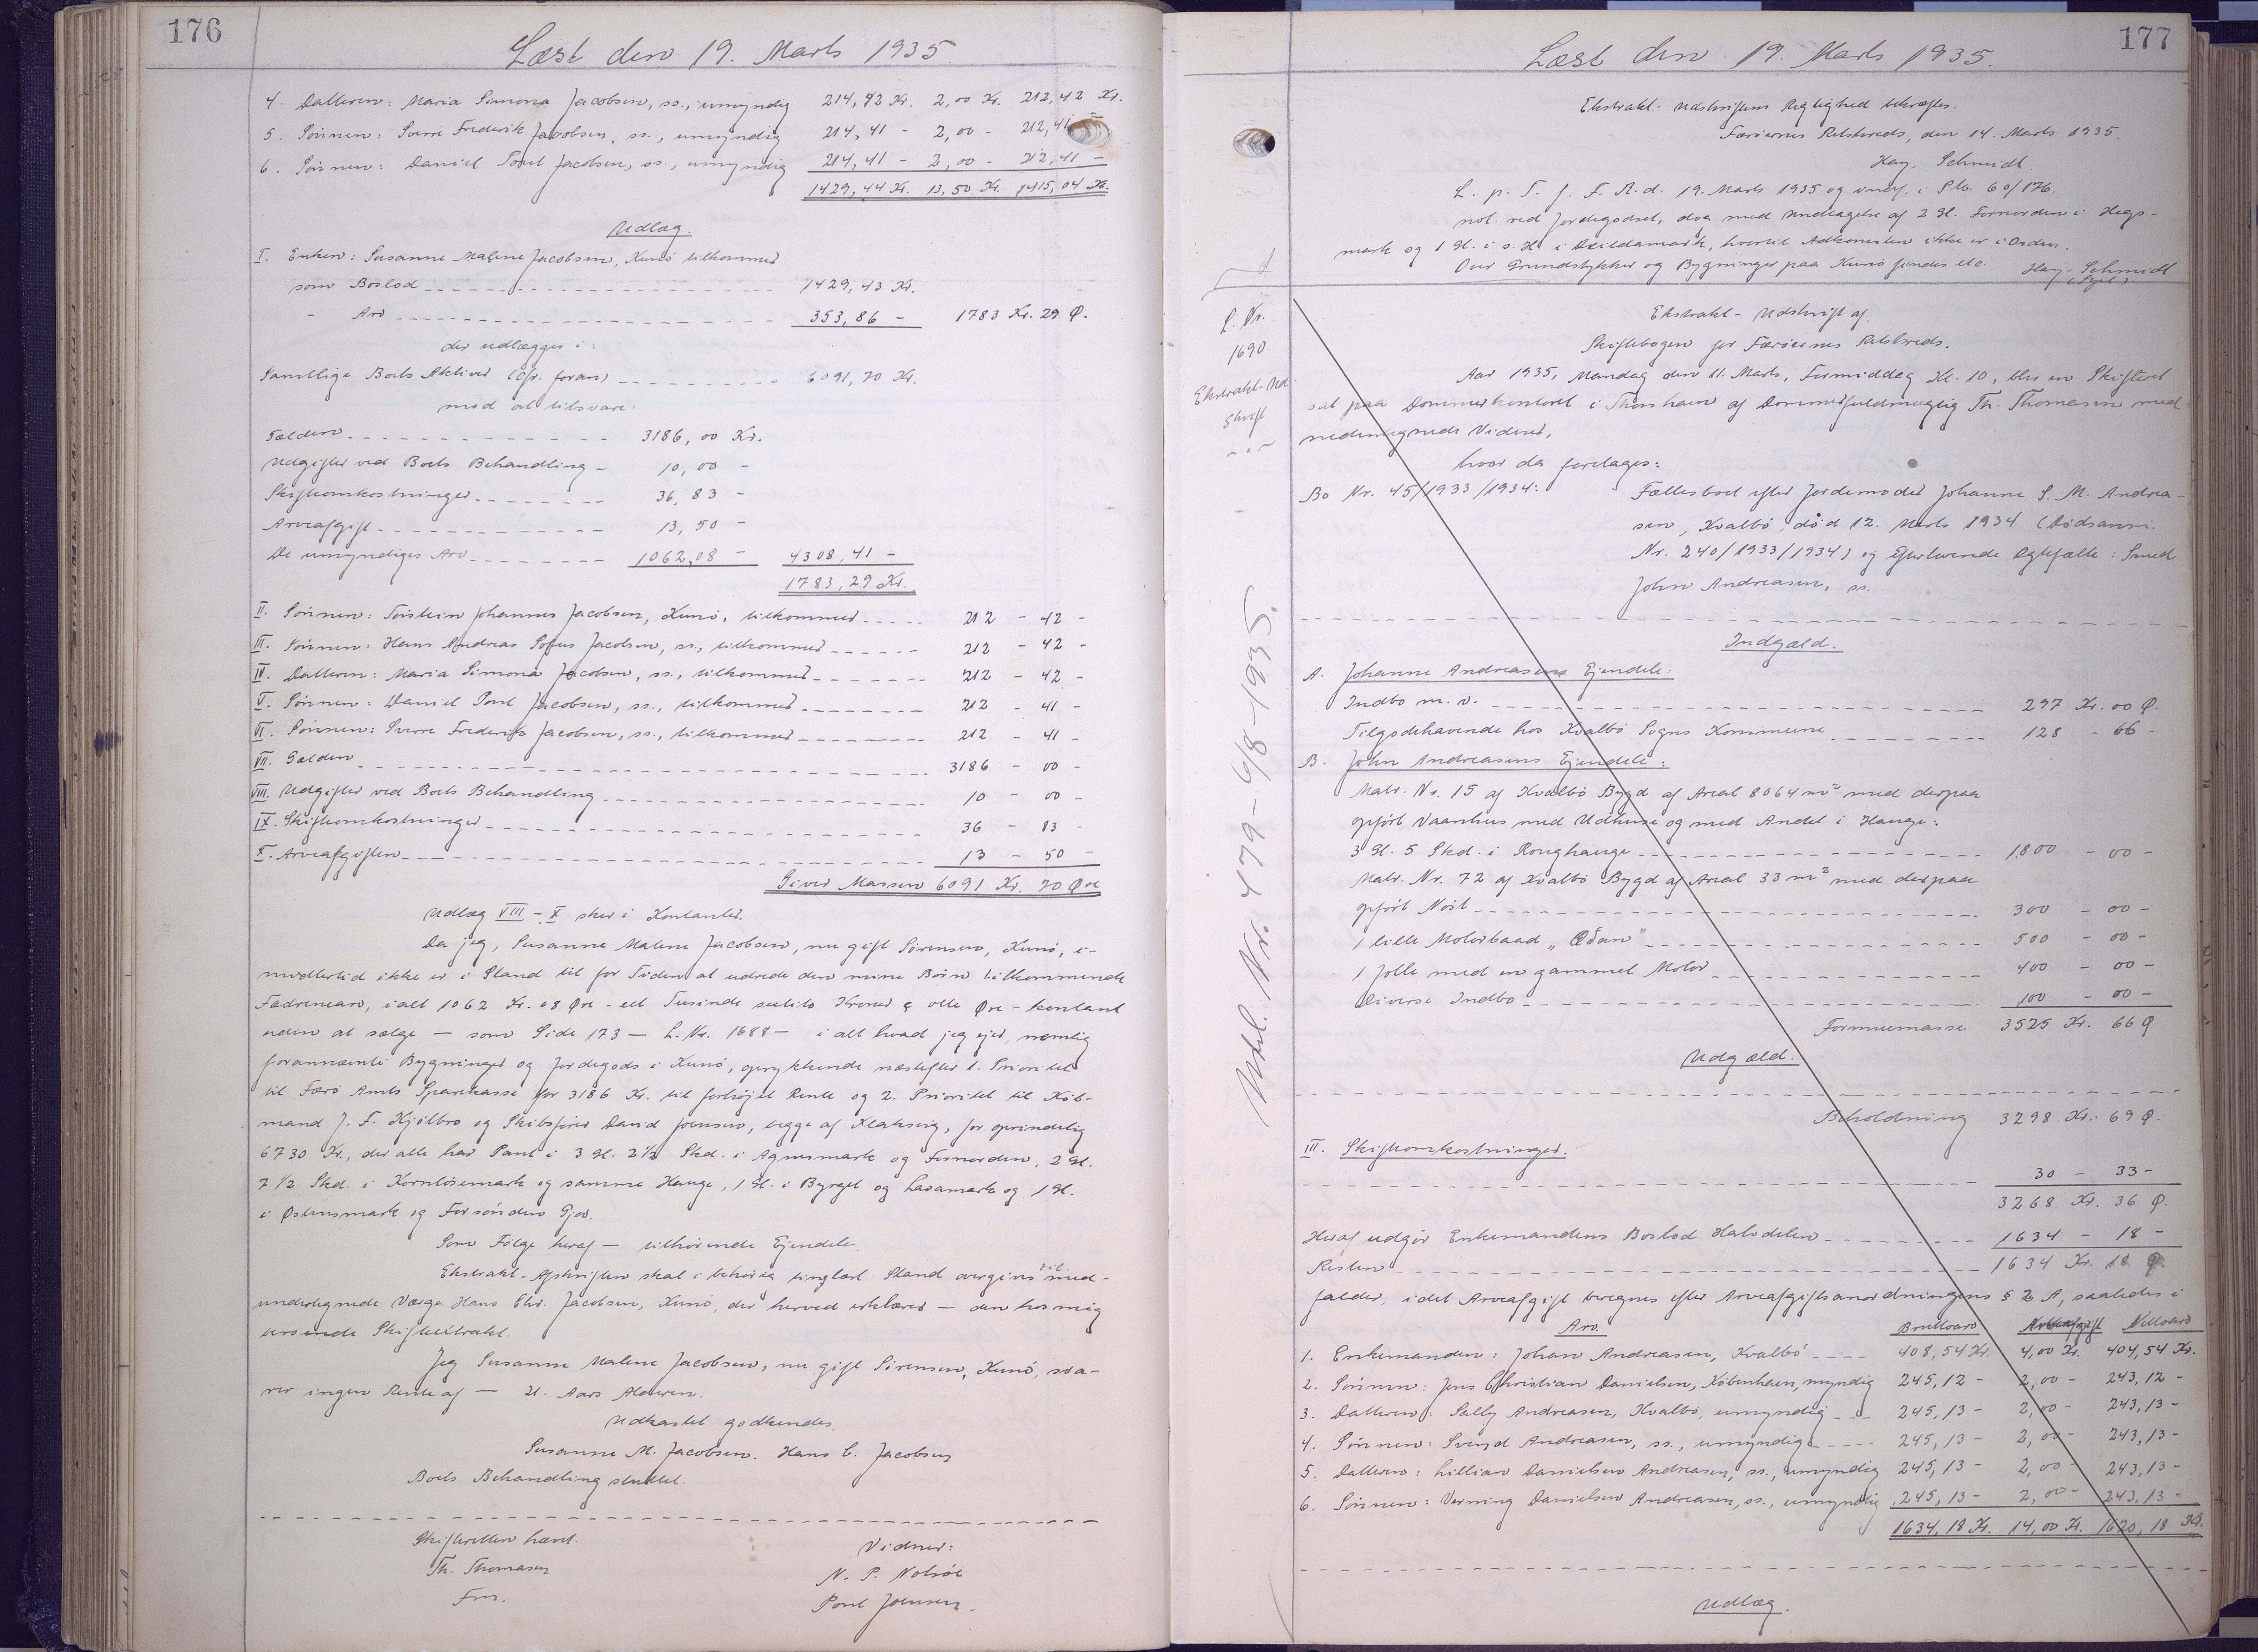 176
Læst den 19. Marts 1935
4. Datteren: Maria Simona Jacobsen, ss., umyndig 214,42 Kr. 2,00 Kr. 212,42 Kr.
5. Sönnen: Sverri Frederik Jacobsen, ss., umyndig 214,41 - 2,00 - 212,41 -
6. Sönnen: Daniel Poul Jacobsen, ss., umyndig 214,41 - 2,00 - 212,41 -
1429,44 Kr. 13,50 Kr. 1415,04 Kr.
Udlæg.
I. Enken: Susanne Malene Jacobsen, Kunö tilkommer
som Boslod 1429,43 Kr.
- Arv 353,86 - 1783 Kr. 29 Ø.
der udlægges i:
Samtlige Boets Aktiver (cfr. foran) 6091,70 Kr.
mod at tilsvare:
Gælden 3186,00 Kr.
Udgifter ved Boets Behandling - 10,00 -
Skifteomkostninger 36,83 -
Arveafgift 13,50 -
De umyndiges Arv 1062,08 - 4308,41 -
1783,29 Kr.
II. Sönnen: Torstein Johannes Jacobsen, Kunö, tilkommer 212 - 42 -
III. Sönnen: Hans Andreas Sofus Jacobsen, ss., tilkommer 212 - 42 -
IV. Datteren: Maria Simona Jacobsen, ss., tilkommer 212 - 42 -
V. Sönnen: Daniel Poul Jacobsen, ss., tilkommer 212 - 41 -
VI. Sönnen: Sverre Frederik Jacobsen, ss., tilkommer 212 - 41 -
VII. Gælden 3186 - 00 -
VIII. Udgifter ved Boets Behandling 10 - 00 -
IX. Skifteomkostninger 36 - 83 -
X. Arveafgiften 13 - 50 -
Giver Massen 6091 Kr. 70 Øre
Udlæg VIII - X sker i Kontanter.
Da jeg, Susanne Malene Jacobsen, nu gift Sörensen, Kunö, i-
midlertid ikke er i Stand til for Tiden at udrede den mine Börn tilkommende
Fædrenearv, ialt 1062 Kr. 08 Øre - et Tusinde seksti to Kroner & otte Øre - kontant
uden at sælge — som Side 173 — L. Nr. 1688 — i alt hvad jeg ejer, nemlig
forannævnte Bygninger og Jordegods i Kunö, oprykkende næstefter 1. Prioritet
til Færö Amts Sparekasse for 3186 Kr. til forhöjet Rente og 2. Prioritet til Köb-
mand J. F. Kjölbro og Skibsförer David Joensen, begge af Klaksvig, for oprindelig
6730 Kr., der alle har Pant i 3 Gl. 2½ Skd. i Agnusmark og Fornorden, 2 Gl.
7 1/2 Skd. i Kornlösemark og samme Hauge, 1 Gl. i Byrget og Lasamark og 1 Gl.
i Østensmark og Forsönden Gjov.
Som Fölge heraf — tilhörende Ejendele.
Ekstrakt-Afskriften skal i behörig tinglæst Stand overgives til med-
undertegnede Værge Hans Chr. Jacobsen, Kunö, der herved erklærer — den hos mig
beroende Skifteextrakt.
Jeg Susanne Malene Jacobsen, nu gift Sörensen, Kunö, sva-
rer ingen Rente af — 21. Aars Alderen.
Udkastet godkendes.
Susanne M. Jacobsen. Hans C. Jacobsen
Boets Behandling sluttet.
Skifteretten hævet.
Th. Thomasen
Fm.
Vidner:
N. P. Nolsöe
Poul Joensen.
177
Læst den 19. Marts 1935.
Ekstrakt-Udskriftens Rigtighed bekræftes.
Færöernes Retskreds, den 14. Marts 1935.
Hay. Schmidt.
L. p. T. f. F. R. d. 19. Marts 1935 og indf. i Sk. 60/176.
not. ved Jordegodset, dog med Undtagelse af 2 Gl. Fornorden i Hegs-
mark og 1 Gl. i s. H. i Deildamark, hvortil Adkomsten ikke er i Orden.
Over Grundstykker og Bygninger paa Kunö findes etc. Hay. Schmidt
L. Nr.
1690
Ekstrakt-Ud-
skrift
Udsl. Nr. 479-4/8-1935.
Ekstrakt-Udskrift af
Skiftebogen for Færöernes Retskreds.
Aar 1935, Mandag den 11. Marts, Formiddag Kl. 10, blev en Skifteret
sat paa Dommerkontoret i Thorshavn af Dommerfuldmægtig Th. Thomasen med
nedennævnte Vidner,
hvor da foretages:
Bo Nr. 45/1933/1934: Fællesboet efter Jordemoder Johanne S. M. Andrea-
sen, Kvalbö, död 12. Marts 1934 (Dödsanm.
Nr. 240/1933/1934) og efterlevende Ægtefælle: Smed
John Andreasen, ss.
Indgæld.
A. Johanne Andreasens Ejendele:
Indbo m. v. 297 Kr. 00 Ø.
Tilgodehavende hos Kvalbö Sogns Kommune 128 - 66 -
B. John Andreasens Ejendele:
Matr. Nr. 15 af Kvalbö Bygd af Areal 8064 m² med derpaa
opfört Vaanhus med Udhuse og med Andel i Hauge:
3 Gl. 5 Skd. i Roughauge 1800 - 00 -
Matr. Nr. 72 af Kvalbö Bygd af Areal 33 m² med derpaa
opfört Nöst 300 - 00 -
1 lille Motorbaad „Æðan" 500 - 00 -
1 Jolle med en gammel Motor 400 - 00 -
Diverse Indbo 100 - 00 -
Formuemasse 3525 Kr. 66 Ø
Udgæld.
Beholdning 3298 Kr. 69 Ø.
III. Skifteomkostninger.
30 - 33 -
3268 Kr. 36 Ø.
Heraf udgör Enkemandens Boslod Halvdelen 1634 - 18 -
Resten 1634 Kr. 18 Ø.
falder, idet Arveafgift beregnes efter Arveafgiftsanordningens § 2 A, saaledes i
Arv. Bruttoarv Arveafgift Nettoarv
1. Enkemanden: Johan Andreasen, Kvalbö 408,54 Kr. 4,00 Kr. 404,54 Kr.
2. Sönnen: Jens Christian Danielsen, Köbenhavn, myndig 245,12 - 2,00 - 243,12 -
3. Datteren: Sally Andreasen, Kvalbö, umyndig 245,13 - 2,00 - 243,13 -
4. Sönnen: Svend Andreasen, ss., umyndig 245,13 - 2,00 - 243,13 -
5. Datteren: Lillian Danielsen Andreasen, ss., umyndig 245,13 - 2,00 - 243,13 -
6. Sönnen: Verning Danielsen Andreasen, ss., umyndig 245,13 - 2,00 - 243,13 -
1634,18 Kr. 14,00 Kr. 1620,18 Kr.
Udlæg.